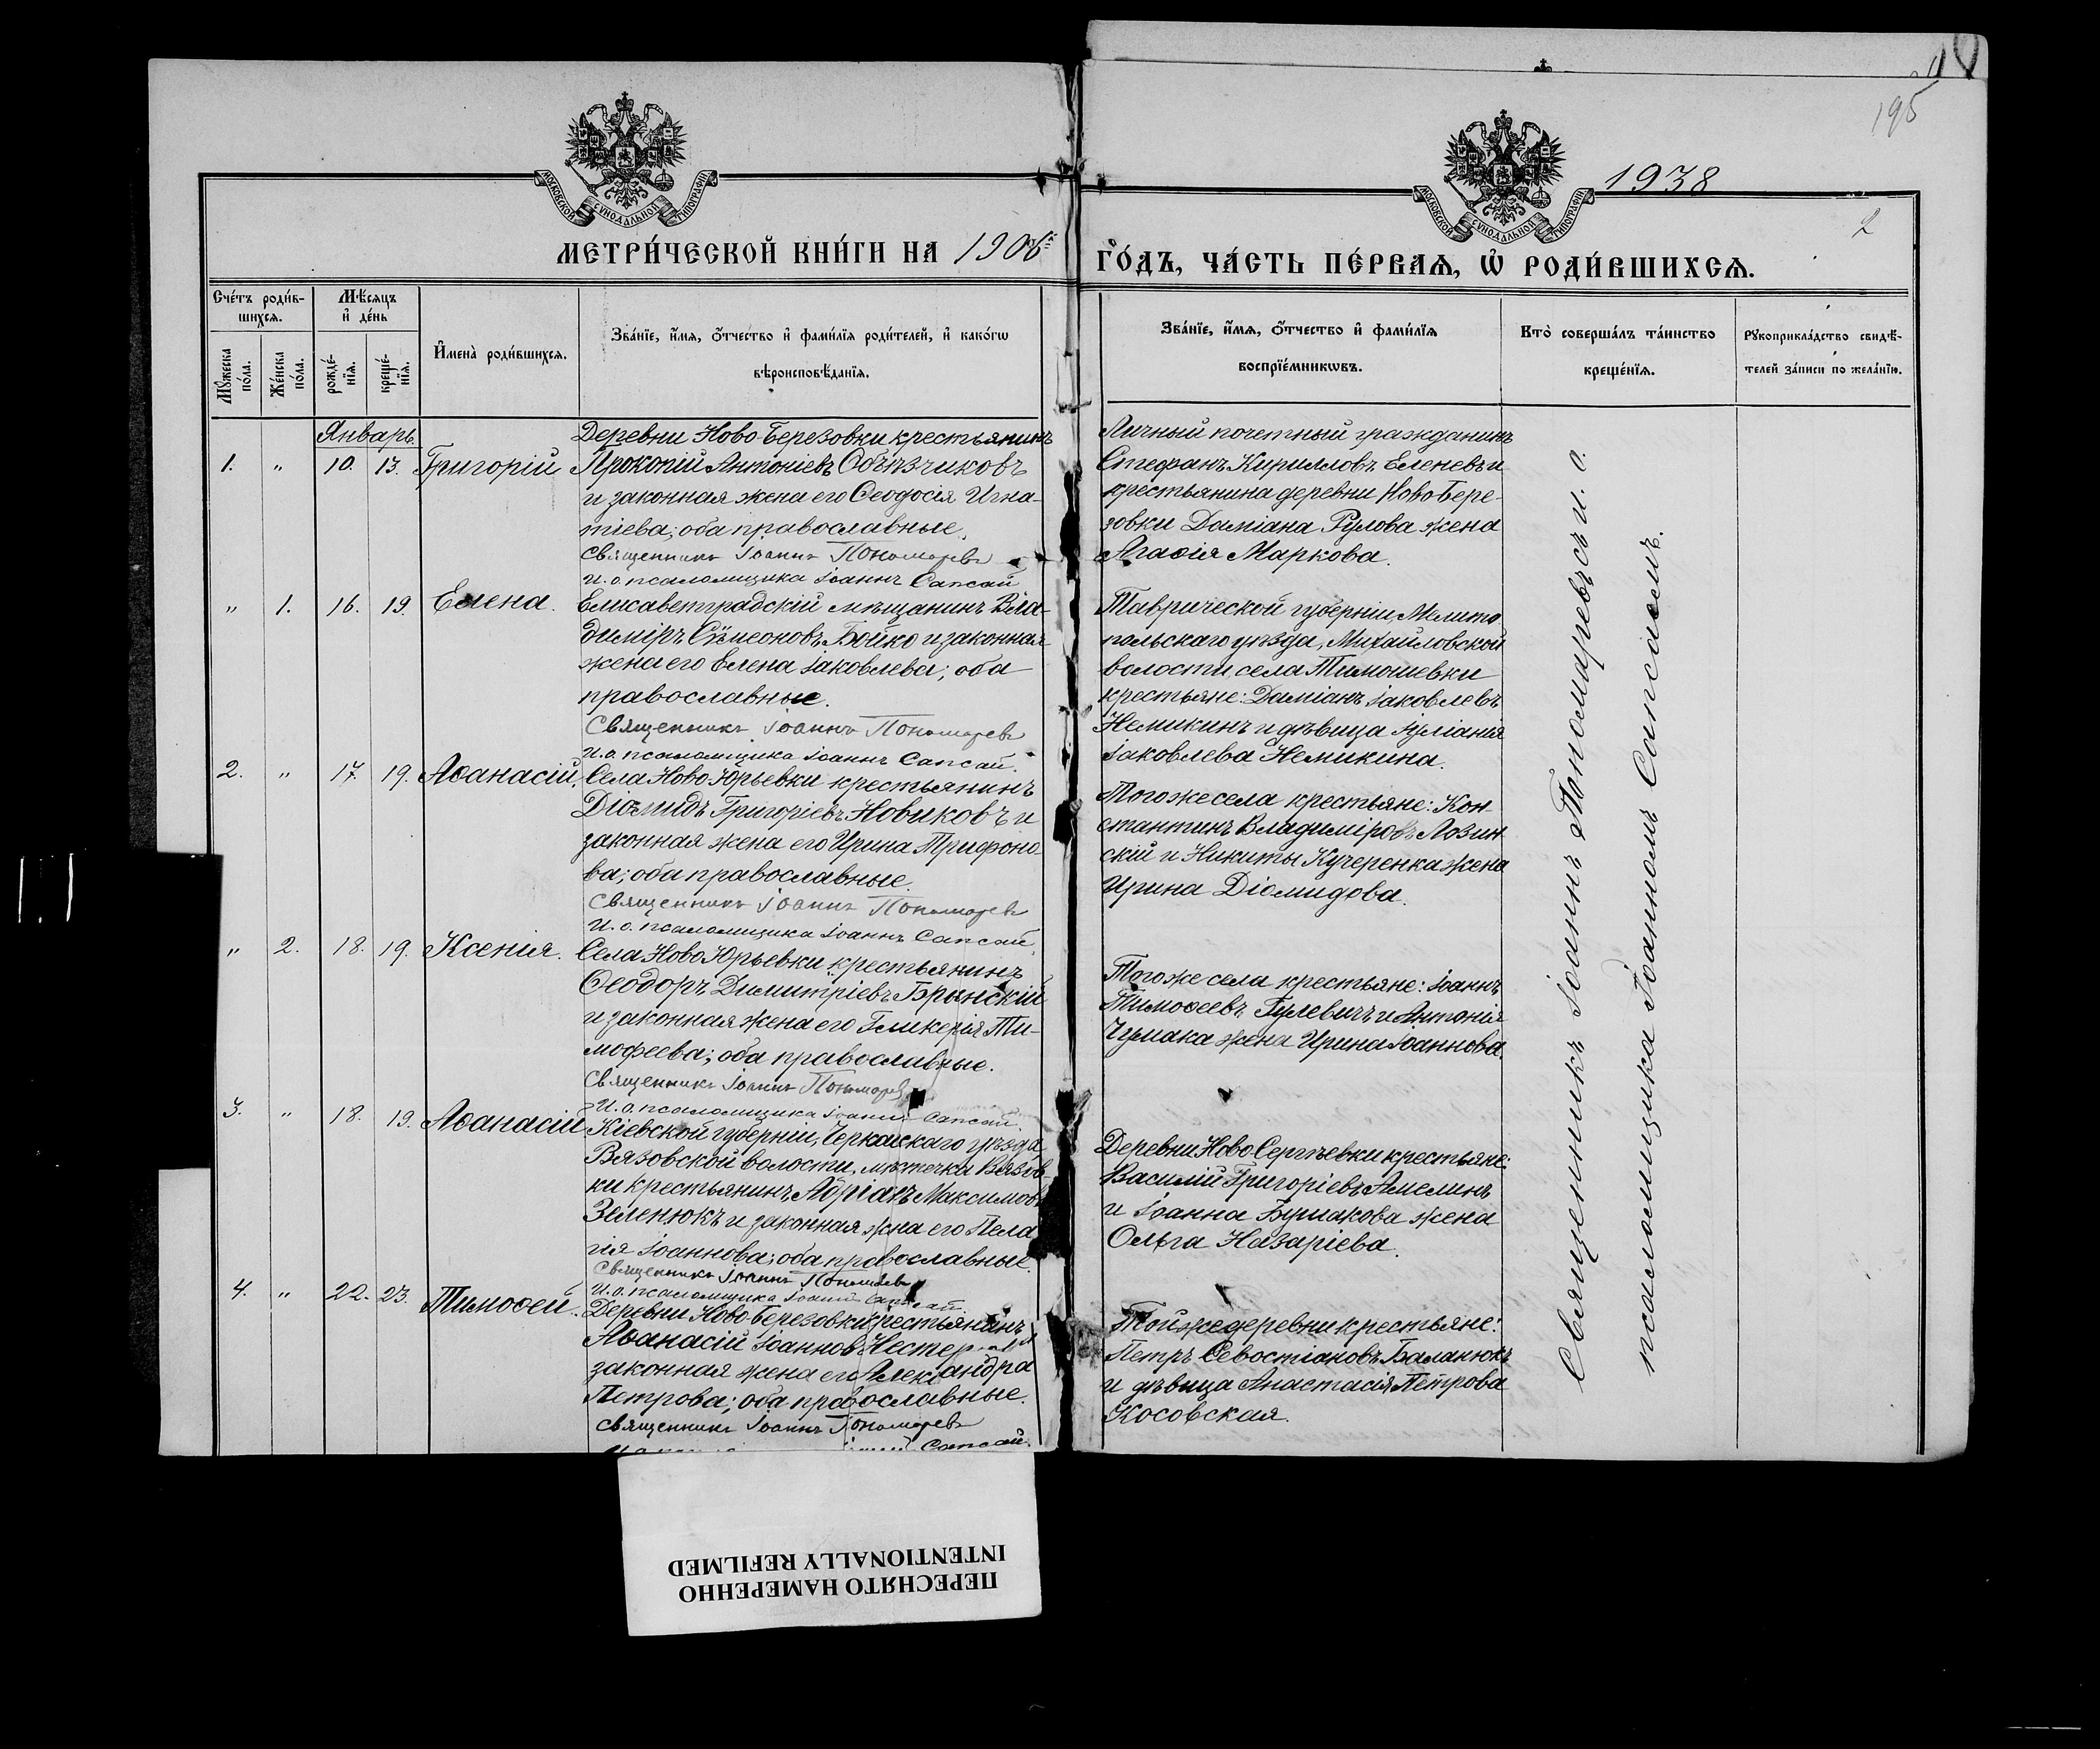 195
1938
2
МОСКОВСКОЙ СѴНОДАЛЬНОЙ ТИПОГРАФІИ
МОСКОВСКОЙ СѴНОДАЛЬНОЙ ТИПОГРАФІИ
МЕТРИ́ЧЕСКОЙ КНИ́ГИ НА 1906й
ГО́ДЪ, ЧА́СТЬ ПЕ́РВАѦ, Ѡ҆ РОДИ́ВШИХСѦ.
Сче́тъ роди́в-
шихсѧ.
Мꙋ́жеска по́ла.
Же́нска по́ла.
Мѣ́сѧцъ
и҆ де́нь
рожде́-
нїѧ.
креще́-
нїѧ.
И҆мена̀ роди́вшихсѧ.
Зва́нїе, и҆́мѧ, ѻ҆́тчество и҆ фами́лїѧ роди́телей, и҆ како́гѡ
вѣроисповѣ́данїѧ.
Зва́нїе, и҆́мѧ, ѻ҆́тчество и҆ фами́лїѧ
воспрїе́мникѡвъ.
Кто̀ соверша́лъ та́инство
креще́нїѧ.
Рꙋкоприкла́дство свидѣ́-
телей за́писи по жела́нїю.
Январь.
1. " 10. 13. Григорій
Деревни Ново-Березовки крестьянинъ
Прокопій Антоніевъ Объѣзчиковъ
и законная жена его Ѳеодосія Игна-
тіева; оба православные.
Священникъ Іоаннъ Пономаревъ
И. о. псаломщика Іоаннъ Сапсай
Личный почетный гражданинъ
Стефанъ Кирилловъ Еленевъ и
крестьянина деревни Ново-Бере-
зовки Даміана Рулова жена
Агаѳія Маркова.
" 1. 16. 19. Елена.
Елисаветградскій мѣщанинъ Вла-
диміръ Сѵмеоновъ Бойко и законная
жена его Елена Іаковлева; оба
православные.
Священникъ Іоаннъ Пономаревъ
И. о. псаломщика Іоаннъ Сапсай.
Таврической губерніи, Мелито
польскаго уѣзда, Михайловской
волости, села Тимошевки
крестьяне: Даміанъ Іаковлевъ
Немикинъ и дѣвица Іуліанія
Іаковлева Немикина.
2. " 17. 19. Аѳанасій.
Села Ново Юрьевки крестьянинъ
Діомидъ Григоріевъ Новиковъ и
законная жена его Ирина Трифоно-
ва; оба православные.
Священникъ Іоаннъ Пономаревъ
И. о. псаломщика Іоаннъ Сапсай
Того же села крестьяне: Кон-
стантинъ Владиміровъ Лозин-
скій и Никиты Кучеренка жена
Ирина Діомидова.
" 2. 18. 19. Ксенія.
Села Ново Юрьевки крестьянинъ
Ѳеодоръ Димитріевъ Брынскій
и законная жена его Гликерія Ти-
мофеева; оба православные.
Священникъ Іоаннъ Пономарев
И. о. псаломщика Іоаннъ Сапсай.
Того же села крестьяне: Іоаннъ
Тимоѳеевъ Гулевичъ и Антонія
Чумака жена Ирина Іоаннова
3. " 18. 19. Аѳанасій
Кіевской губерніи, Черкасскаго уѣзда
Вязовской волости, мѣстечка Вязов-
ки крестьянинъ Адріанъ Максимовъ
Зеленюкъ и законная жена его Пела
гія Іоаннова; оба православные.
Священникъ Іоаннъ Пономаревъ
И. о. псаломщика Іоаннъ Сапсай.
Деревни Ново Сергѣевки крестьяне:
Василій Григоріевъ Амелинъ
и Іоанна Бушакова жена
Ольга Назаріева.
4. " 22. 23. Тимоѳей.
Деревни Ново-Березовки крестьянинъ
Аѳанасій Іоанновъ и
законная жена его Александра
Петрова; оба православные.
Священникъ Іоаннъ Пономаревъ
Сапсай.
Той же деревни крестьяне:
Петръ Севостіановъ Баланюкъ
и дѣвица Анастасія Петрова
Косовская.
Священникъ Іоаннъ Пономаревъ съ и. о.
псаломщика Іоанномъ Сапсаемъ.
ПЕРЕСНЯТО НАМЕРЕННО
INTENTIONALLY REFILMED